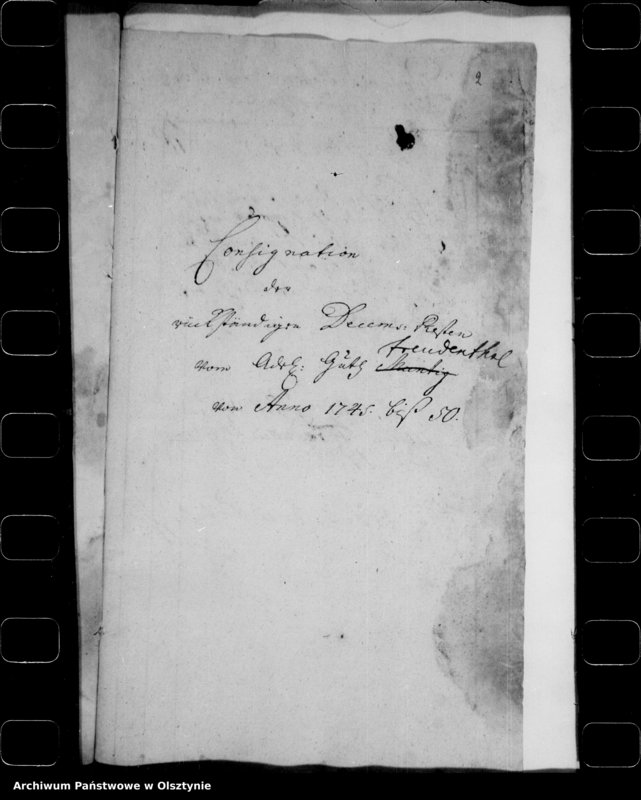 2
Consignation
der
rückständigen Decems: Resten
Freudenthal
vom Adel: Guth
von Anno 1745. biß 50.
Archiwum Państwowe w Olsztynie